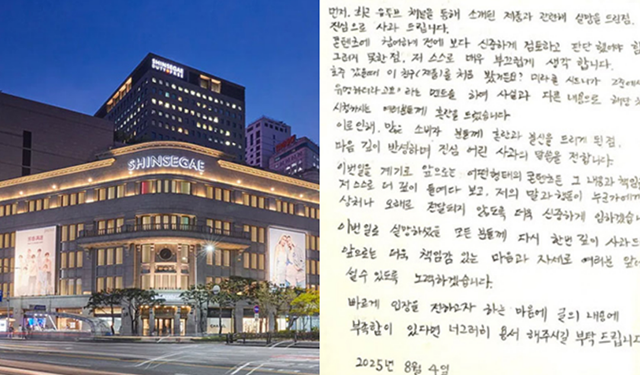 SHINSEGAE
SHINSEGAE
먼저, 최근 유튜브 채널을 통해 소개된 제품과 관련해 실망을 드린점,
진심으로 사과 드립니다.
콘텐츠에 참여하기 전에 보다 신중하게 검토하고 판단 했어야 함
그러지 못한 점, 저 스스로 매우 부끄럽게 생각 합니다.
호주 있을때 이
하는 멘트를 하여 사실과 다른 내용으로 해당
시청하시는 여러분들께 혼란을 드렸습니다
이로 인해, 많은 소비자 분들께 혼란과 불신을 드리게 된 점
마음 깊이 반성하며 진심 어린 사과의 말씀을 전합니다.
이번일을 계기로 앞으로는 어떤형태의 콘텐츠든 그 내용과 책임
저 스스로 더 깊이 들여다 보고, 저의 말과 행동이 누군가에
상처나 오해로 전달되지 않도록 더욱 신중하게 임하겠습니
이번 일로 실망하셨을 모든 분들께 다시 한번 깊이 사과드
앞으로는 더욱 책임감 있는 마음과 자세로 여러분 앞에
설수 있도록 노력하겠습니다.
바르게 입장을 전하고자 하는 마음에 글의 내용에
부족함이 있다면 너그러히 용서 해주시길 부탁 드립니다
2025년 8월 4일